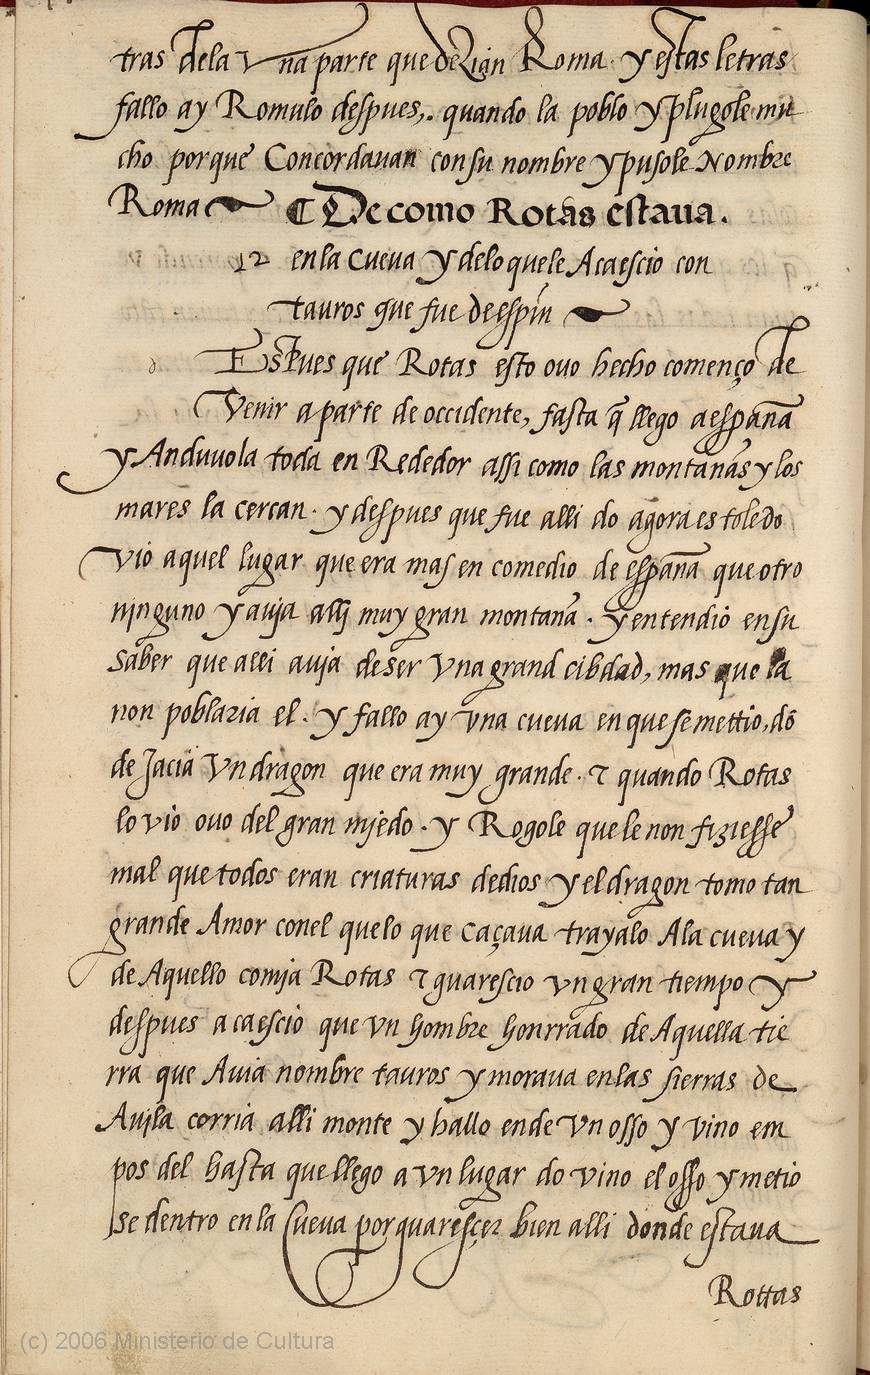 tras dela vna parte que dezian Roma. y estas letras
fallo ay Romulo despues,. quando la poblo y plugole mu
cho porque Concordauan con su nombre y pusole Nombre
Roma ¶ De como Rotas estaua.
12 en la cueva y delo quele Acaescio con
tauros que fue de espín
Espues que Rotas esto ouo hecho començo de
Venir a parte de occidente, fasta q̃ llego a españa
y Anduuola toda en Rededor assi como las montañas y los
mares la cercan. y despues que fue alli do agora es toledo
vio aquel lugar que era mas en comedio de españa que otro
ninguno y auja allj muy gran montaña. y entendio en su
saber que alli auja de ser vna grand cibdad, mas que la
non poblaria el. y fallo ay vna cueva en que se mettio, dõ
de Jacia vn dragon que era muy grande. ⁊ quando Rotas
lo vio ouo del gran mjedo. y Rogole que le non fiziesse
mal que todos eran criaturas de dios y el dragon tomo tan
grande Amor con el que lo que caçaua trayalo A la cueva y
de Aquello comja Rotas ⁊ guarescio vn gran tiempo y
despues acaescio que vn hombre honrrado de Aquella tie
rra que Auia nombre tauros y moraua en las sierras de
Aujla corria alli monte y hallo ende vn osso y vino em
pos del hasta que llego a vn lugar do vino el osso y metio
se dentro en la Cueva por guarescer bien alli donde estaua
Rottas
(c) 2006 Ministerio de Cultura